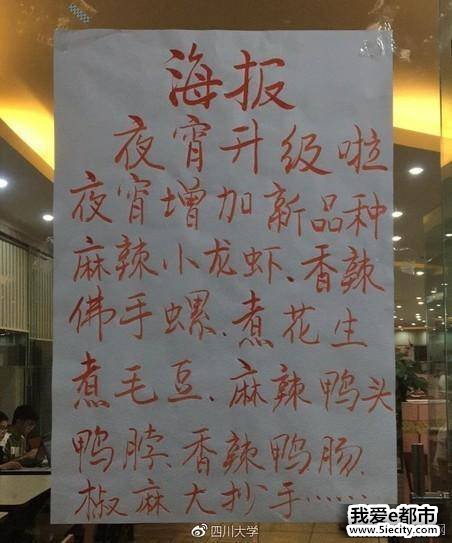 海报
夜宵升级啦
夜宵增加新品种
麻辣小龙虾、香辣
佛手螺、煮花生
煮毛豆、麻辣鸭头
鸭脖、香辣鸭肠、
椒麻大抄手……
四川大学
我爱e都市
www.5iecity.com